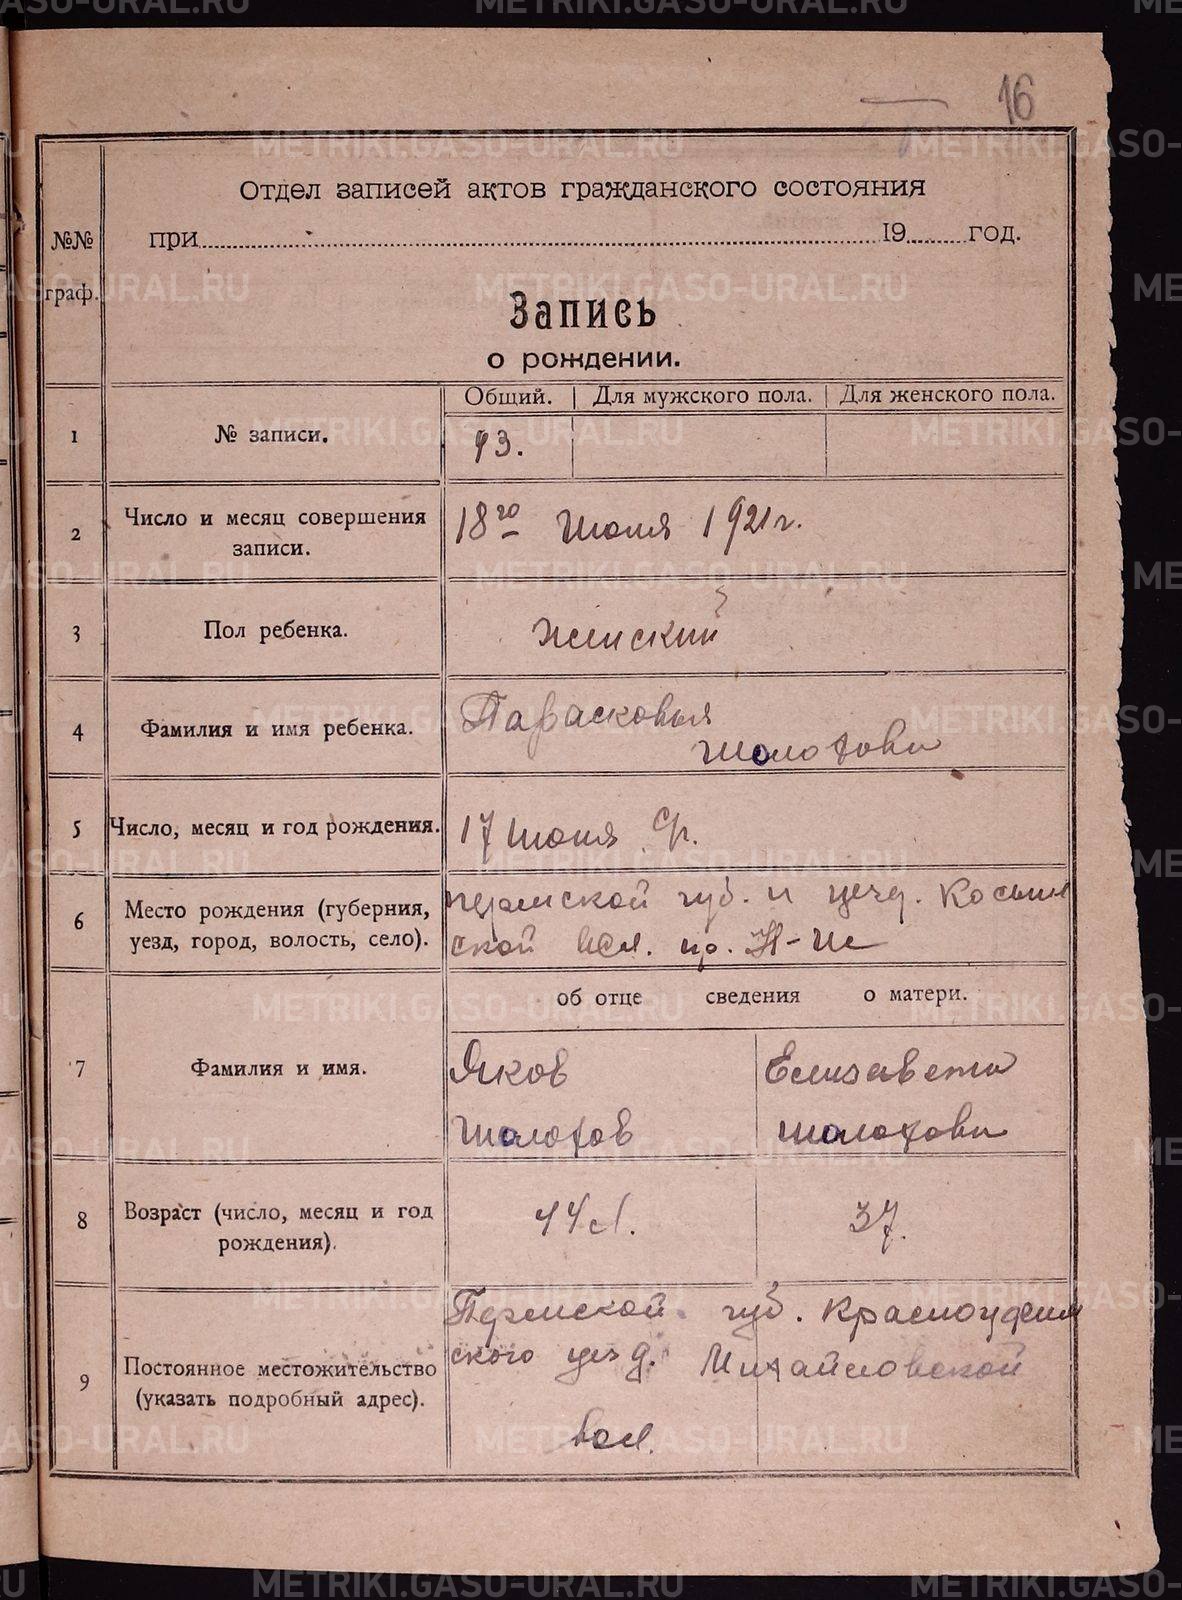 16
Отдел записей актов гражданского состояния
№№ граф.
при 19 год.
Запись
о рождении.
Общий. Для мужского пола. Для женского пола.
1 № записи. 93.
2 Число и месяц совершения записи. 18го Июля 1921 г.
3 Пол ребенка. Женский
4 Фамилия и имя ребенка. Парасковья
Шолохова
5 Число, месяц и год рождения. 17 Июля
6 Место рождения (губерния, уезд, город, волость, село). пермской губ. и уезд.
ской вол.
об отце сведения о матери.
7 Фамилия и имя. Яков Елизавета
Шолохов Шолохова
8 Возраст (число, месяц и год рождения). 44 л. 37.
9 Постоянное местожительство (указать подробный адрес). Пермской губ. Красноуфим
ского уезд. Михайловской
вол.
METRIKI.GASO-URAL.RU